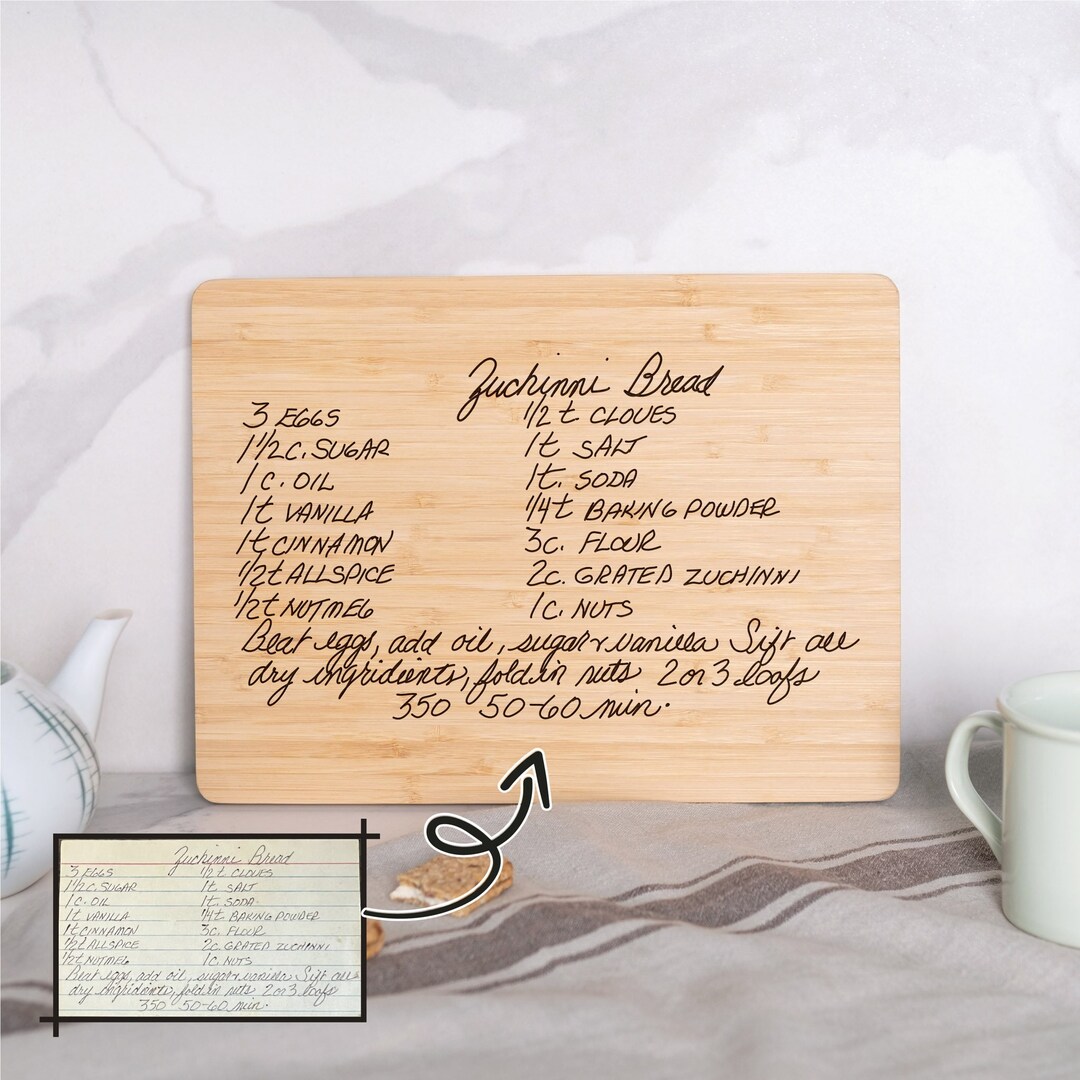 Zuchinni Bread
3 EGGS 1/2 t CLOVES
1 1/2 C. SUGAR 1t SALT
1 C. OIL 1t. SODA
1t VANILLA 1/4t BAKING POWDER
1t CINNAMON 3c. FLOUR
1/2t ALLSPICE 2c. GRATED ZUCHINNI
1/2t NUTMEG 1c. NUTS
Beat eggs, add oil, sugar + vanilla Sift all
dry ingridients, fold in nuts 2 or 3 loafs
350 50-60 min.
Zuchinni Bread
3 EGGS 1/2 t CLOVES
1 1/2 C. SUGAR 1t. SALT
1 C. OIL 1t. SODA
1t VANILLA 1/4t BAKING POWDER
1t CINNAMON 3c. FLOUR
1/2t ALLSPICE 2c. GRATED ZUCHINNI
1/2t NUTMEG 1c. NUTS
Beat eggs, add oil, sugar + vanilla Sift all
dry ingridients, fold in nuts 2 or 3 loafs
350 50-60 min.